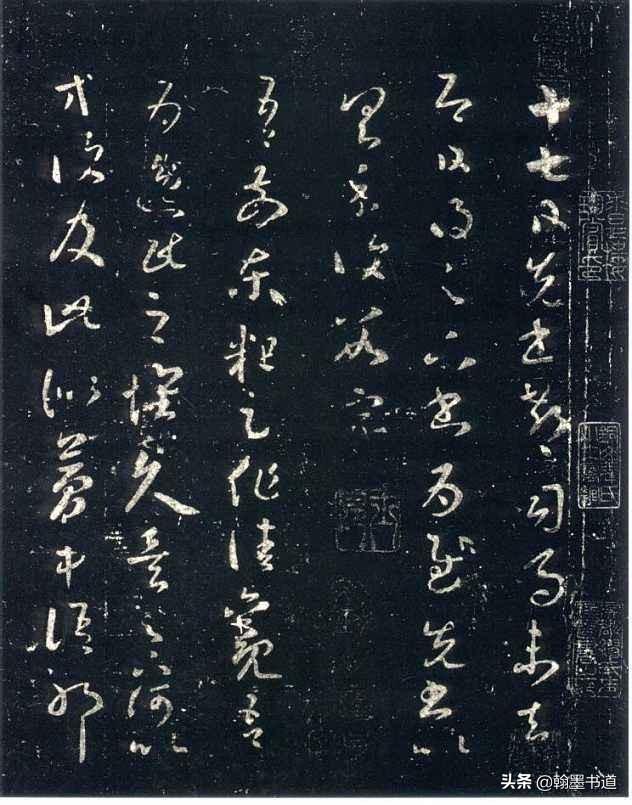 十七日先書郗司馬未去
即日得足下書為慰先書以
具示復數字
吾前東粗足作佳觀吾
為逸民之懷久矣足下何以
等復及此似夢中語耶
头条 @翰墨书道